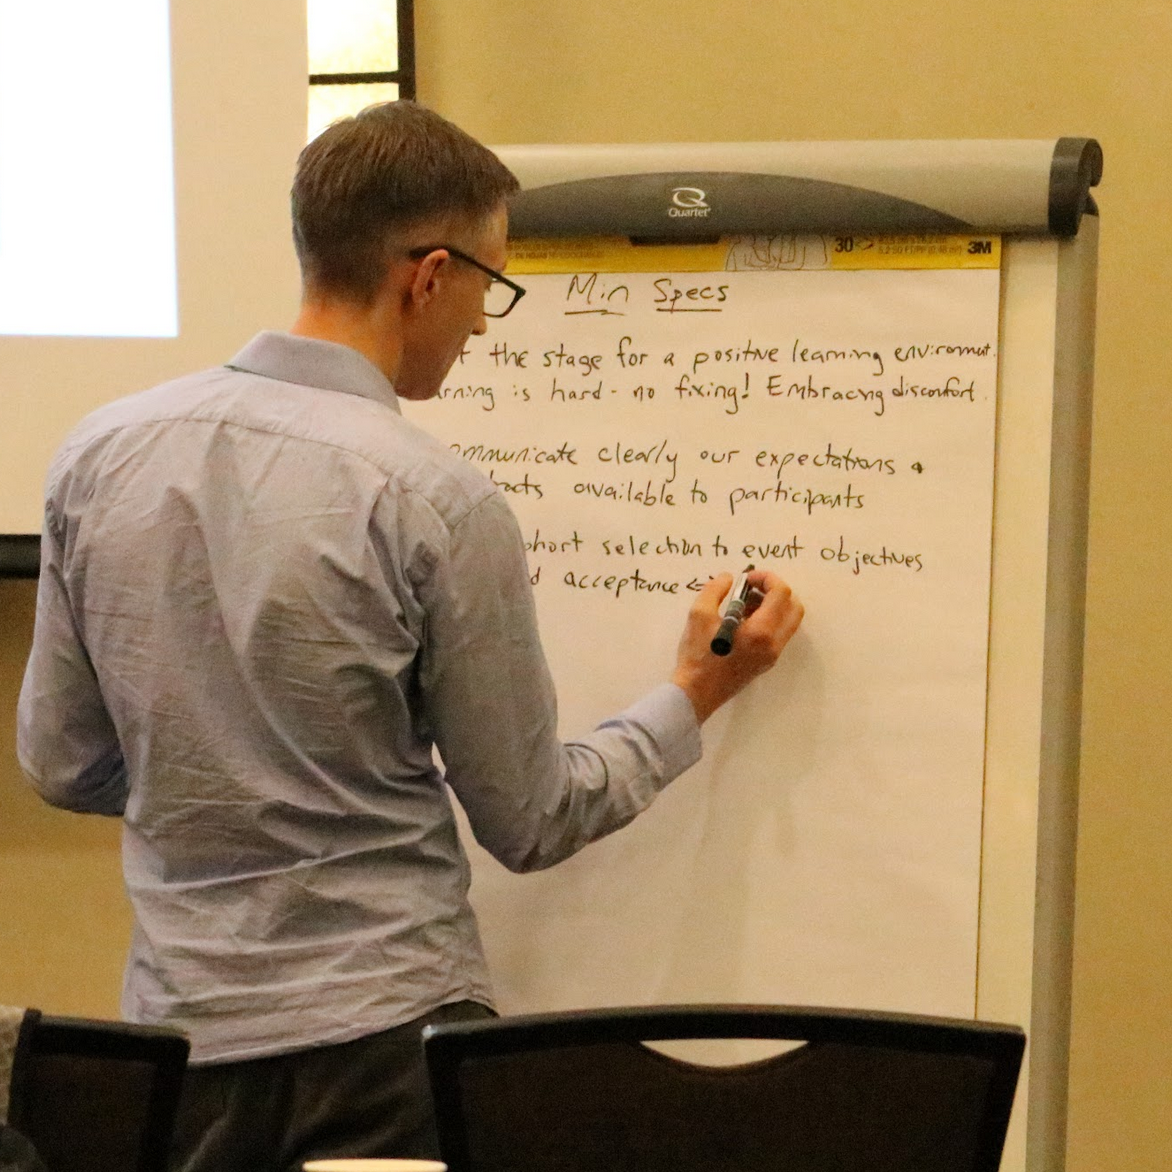 Quartet
30
3M
Min Specs
the stage for a positive learning environment.
is hard - no fixing! Embracing discomfort.
clearly our expectations &
available to participants
selection to event objectives
acceptance <=>